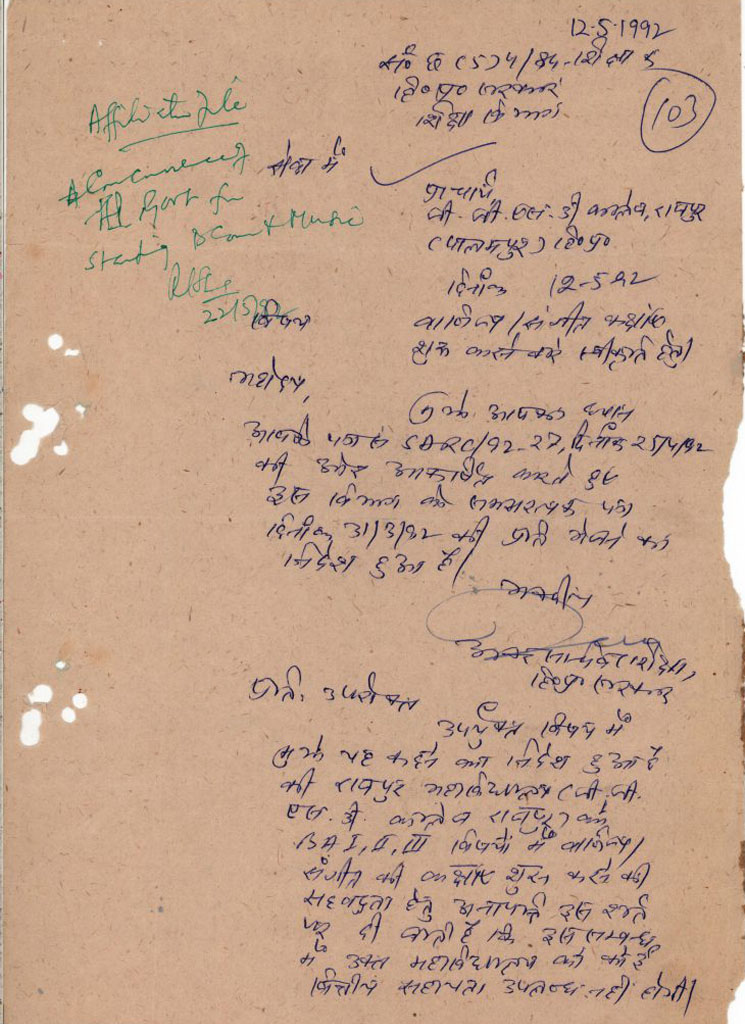 12-5-1992
सं० छ (5) 4/84-शिक्षा
हि०प्र० सरकार
शिक्षा विभाग
103
Affiliation file
Concurrence of
HP Govt for
starting B Com & Music
22/5/92
सेवा में
प्राचार्य
जी. जी. एस. डी कालेज, राजपुर
(पालमपुर) हि०प्र०
दिनांक 12-5-92
विषय वाणिज्य/संगीत कक्षाएं
शुरू करने बारे स्वीकृति हेतु।
महोदय,
मुझे आपका ध्यान
आपके पत्र सं SDRC/92-27, दिनांक 25/4/92
की ओर आकर्षित करते हुए
इस विभाग के समसंख्यक पत्र
दिनांक 31/3/92 की प्रति भेजने का
निर्देश हुआ है।
भवदीय
अवर सचिव (शिक्षा),
हि०प्र० सरकार
प्रति. उपरोक्त
उपर्युक्त विषय में
मुझे यह कहने का निर्देश हुआ है
की राजपुर महाविद्यालय (जी. जी.
एस. डी. कालेज राजपुर) को
BA I, II, III विषयों में वाणिज्य/
संगीत की कक्षाएं शुरू करने की
सहबद्धता हेतु अनापत्ति इस शर्त
पर दी जाती है कि इस सम्बन्ध
में उक्त महाविद्यालय को कोई
वित्तीय सहायता उपलब्ध नहीं होगी।